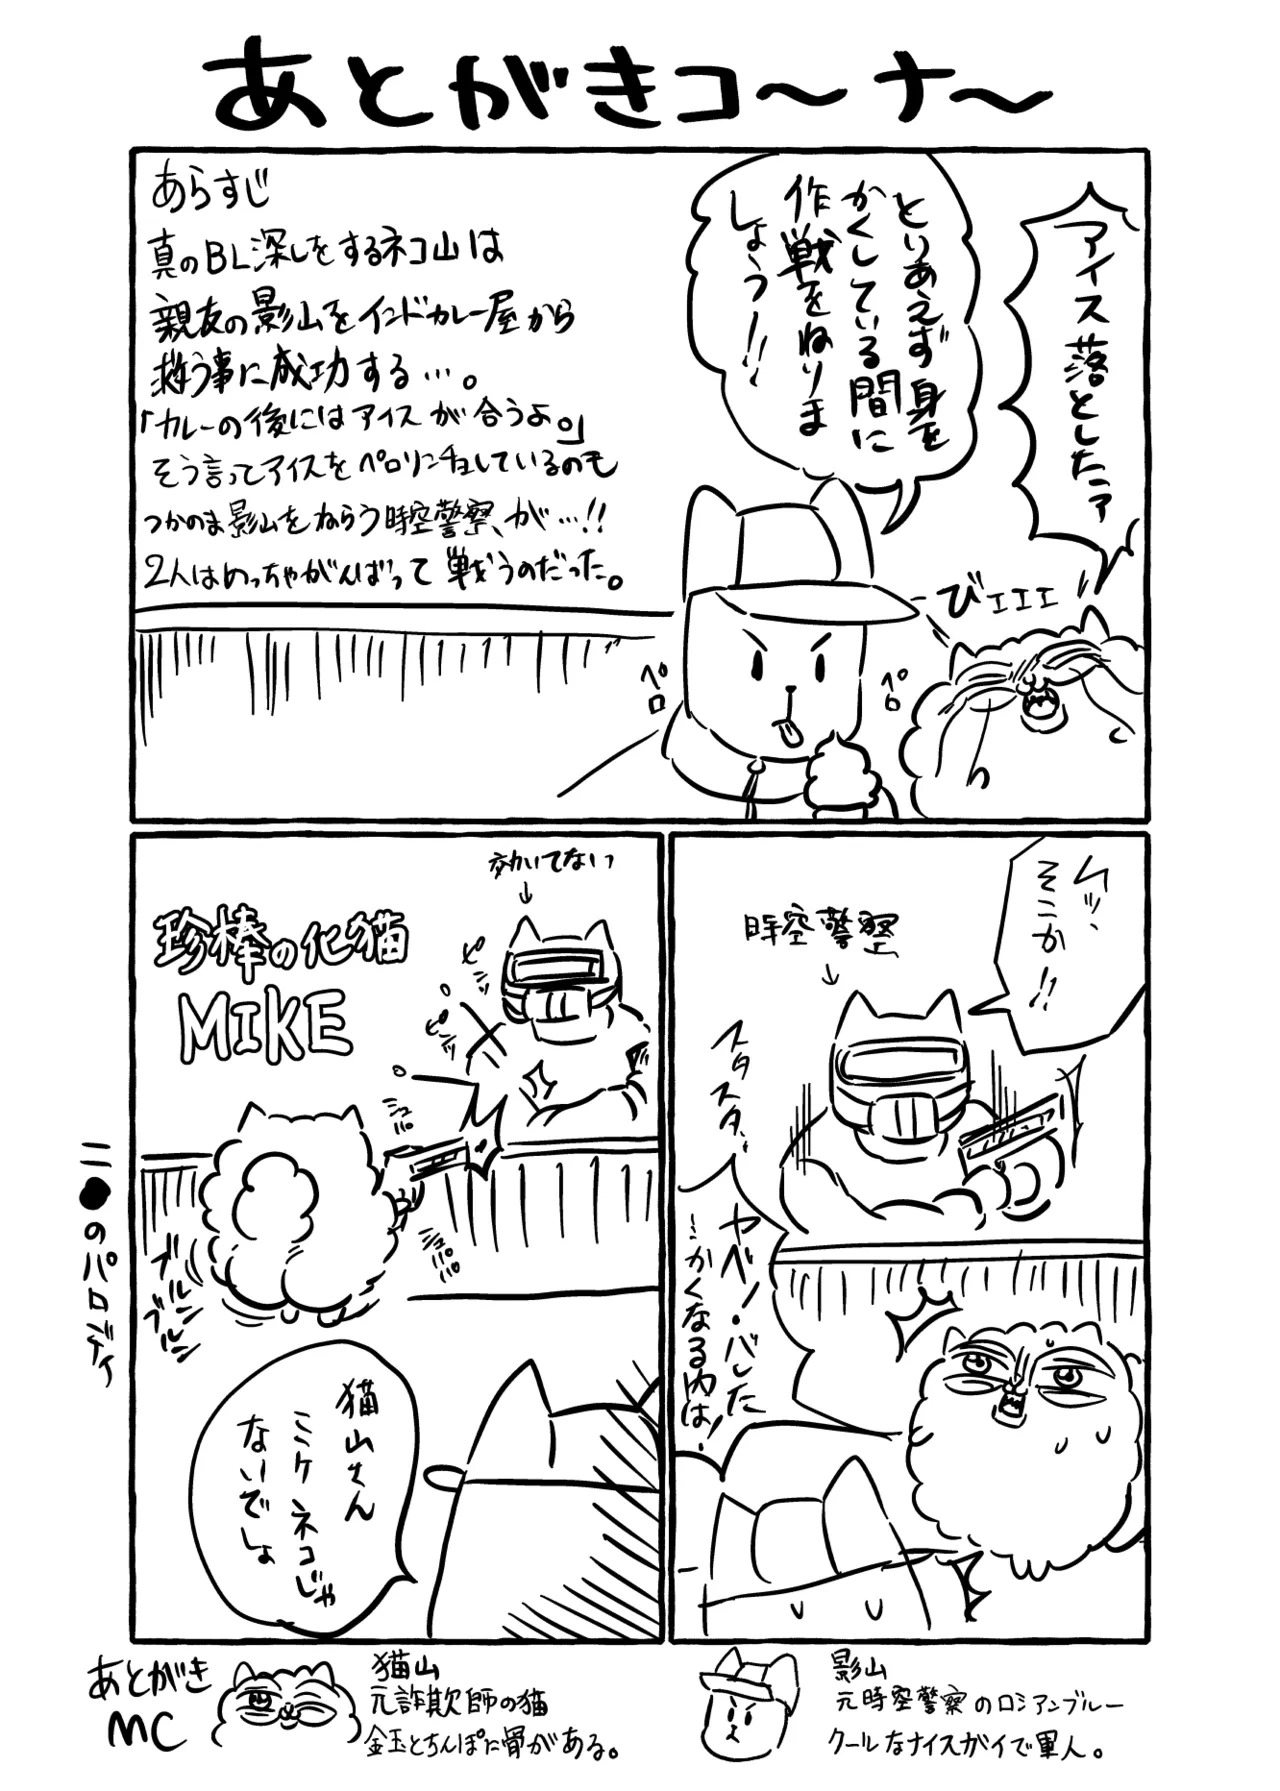 あとがきコ～ナ～
あらすじ
真のBL深しをするネコ山は
親友の影山をインドカレー屋から
救う事に成功する…。
「カレーの後にはアイスが合うよ。」
そう言ってアイスをペロリンチョしているのも
つかのま影山をねらう時空警察が…!!
2人はめっちゃがんばって戦うのだった。
アイス落としたァ
とりあえず身を
かくしている間に
作戦をねりま
しょう!!
びェェェ
ペロ
ペロ
ムッ、
そこか!!
時空警察
スタスタ
スタスタ
ヤベ/・バレた
…かくなる内は!
効いてないっ
珍棒の化猫
MIKE
ピシッ
ピシッ
シュパパ
シュパパパ
ブルン
ブルン
猫山さん
ミケネコじゃ
ないでしょ
二●のパロディ
あとがき
MC
猫山
元詐欺師の猫
金玉とちんぽに骨がある。
影山
元時空警察のロシアンブルー
クールなナイスガイで軍人。